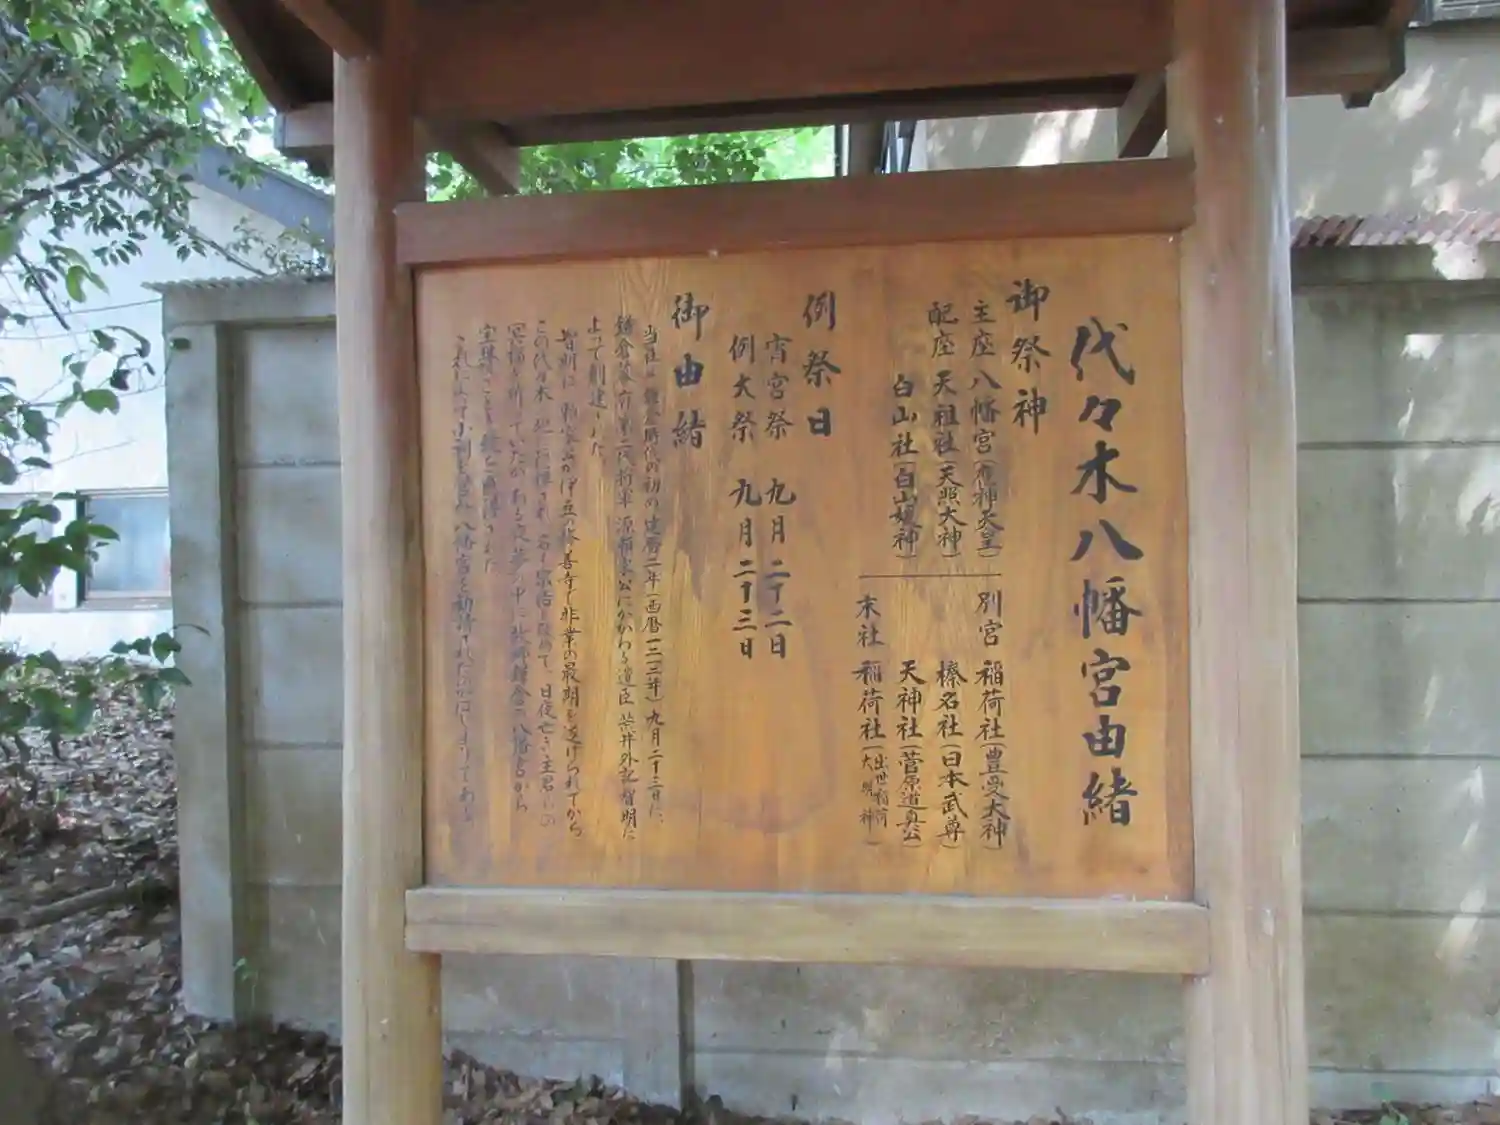 代々木八幡宮由緒
御祭神
主座 八幡宮(応神天皇)
配座 天祖社(天照大神)
白山社(白山媛神)
別宮 稲荷社(豊受大神)
榛名社(日本武尊)
天神社(菅原道真公)
末社 稲荷社(出世稲荷大明神)
例祭日
宵宮祭 九月二十二日
例大祭 九月二十三日
御由緒
当社は鎌倉時代の初め建暦二年(西暦一二一二年)九月二十三日に、
鎌倉幕府第二代将軍源頼家公にかかわる遺臣荒井外記智明に
よって創建された
智明は頼家公が伊豆の修善寺で非業の最期を遂げられてから
この代々木の地に名を宗祐と改めて、日夜亡き主君の
冥福を祈っていたがある夜夢の中に故郷鎌倉の八幡宮から
宝珠
八幡宮を勧請されたのがはじまりである